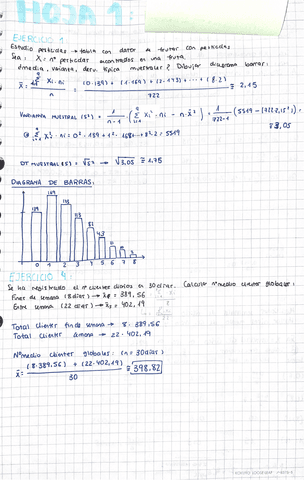 HOJA 1:
EJERCICIO 1
Estudio pesticidas → tabla con datos de frutas con pesticidas
Sea: X: nº pesticidas encontrados en una fruta
¿media, varianza, desv. típica muestrales? Dibujar diagrama barras.
x̄ = Σ xi · ni / n = (0·159) + (1·169) + (2·173) + ... + (8·2) / 722 ≅ 2,15
VARIANZA MUESTRAL (S²) = 1/n-1 (Σ xi² · ni - n · x̄²) = 1/722-1 (5519 - (722·2,15²)) = 3,05
Σ xi² · ni = 0² · 139 + 1² · 168 + ... + 8² · 2 = 5519
DT MUESTRAL (S) = √S² → √3,05 ≅ 1,75
DIAGRAMA DE BARRAS:
0 1 2 3 4 5 6 7 8
EJERCICIO 4:
Se ha registrado el nº clientes diarios en 30 días. Calcular nº medio clientes globales:
Fines de semana (8 días) → x̄f = 389,56
Entre semana (22 días) → x̄s = 402,19
Total clientes finde semana → 8 · 389,56
Total clientes semana → 22 · 402,19
Nº medio clientes globales: (n = 30 días)
x̄ = (8·389,56) + (22·402,19) / 30 = 398,82